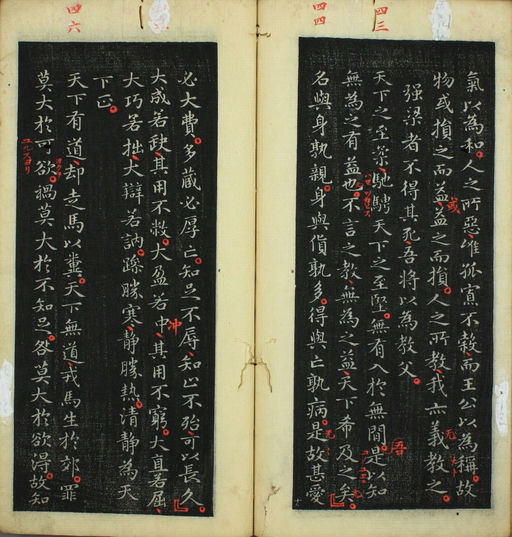 四三
四四
氣以為和人之所惡唯孤寡不穀而王公以為稱故
物或損之而益益之而損人之所教我亦義教之
強梁者不得其死吾將以為教父
天下之至柔馳騁天下之至堅無有入於無間是以知
無為之有益也不言之教無為之益天下希及之矣
名與身孰親身與貨孰多得與亡孰病是故甚愛
或
吾
四六
必大費多藏必厚亡知足不辱知止不殆可以長久
大成若缺其用不敝大盈若中其用不窮大直若屈
大巧若拙大辯若訥躁勝寒靜勝熱清靜為天
下正
天下有道却走馬以糞天下無道戎馬生於郊罪
莫大於可欲禍莫大於不知足咎莫大於欲得故知
冲